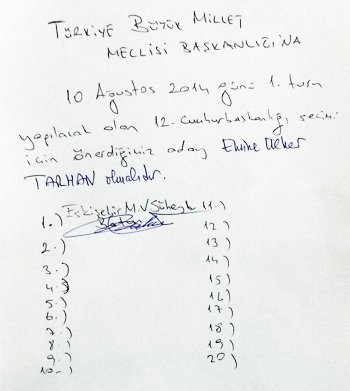 TÜRKİYE BÜYÜK MİLLET
MECLİSİ BAŞKANLIĞI'NA
10 Ağustos 2014 günü 1. turu
yapılacak olan 12. Cumhurbaşkanlığı seçimi
için önerdiğimiz aday Emine Ülker
TARHAN olmalıdır.
1.) Eskişehir M.V Süheyl 11.)
Batum
2.) 12)
3.) 13)
4.) 14)
5.) 15)
6.) 16)
7.) 17)
8.) 18)
9.) 19)
10-) 20)